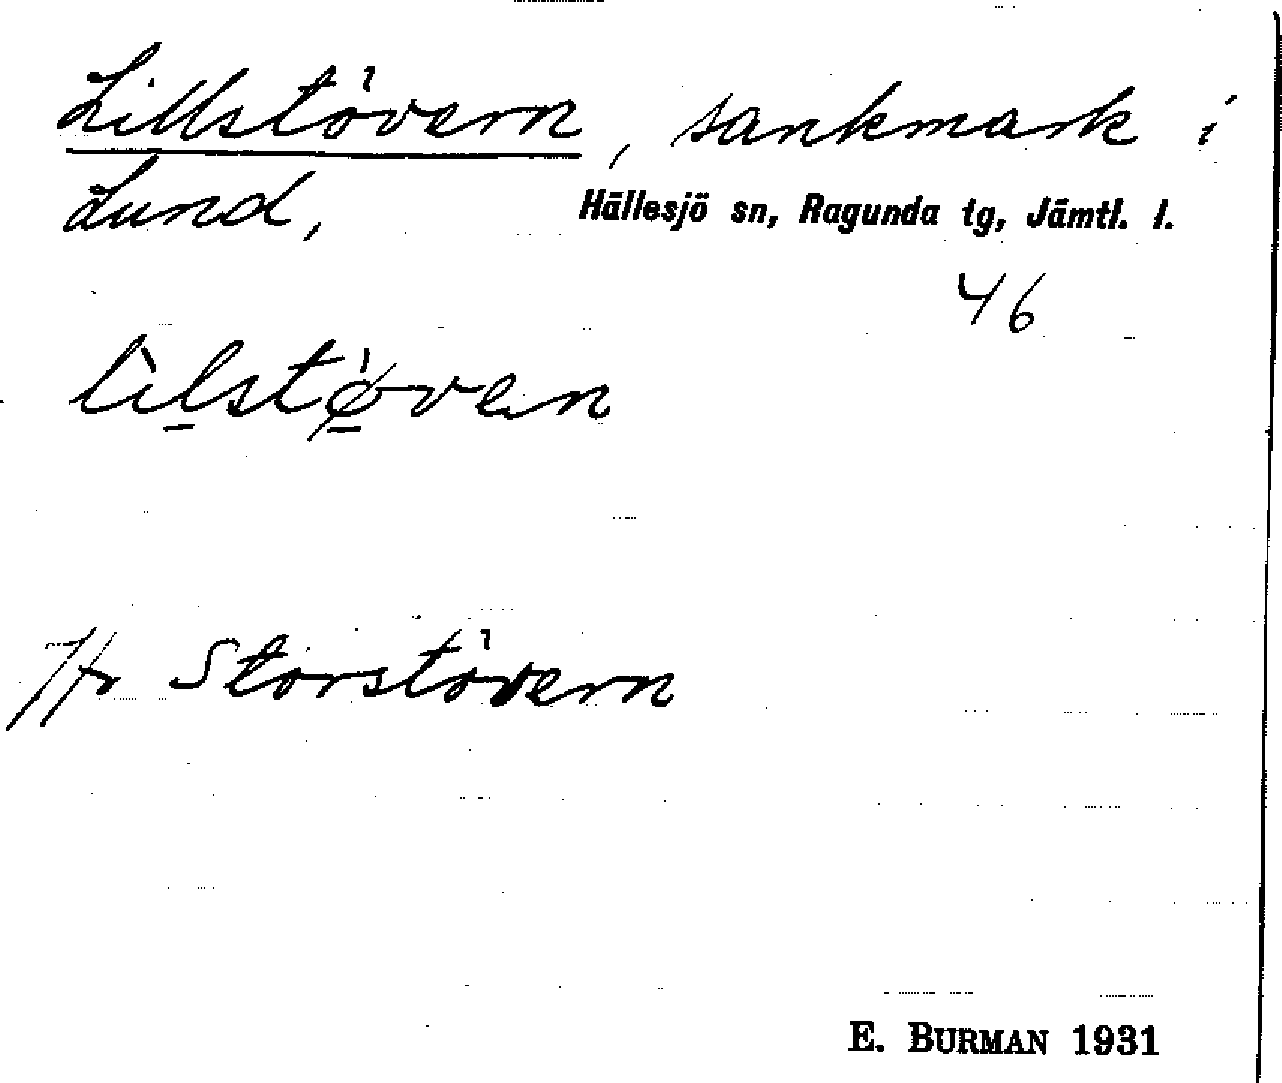 Lillstövern, sankmark i
Lund, Hällesjö sn, Ragunda tg, Jämtl. l.
46
lìlstø̀ven
Jfr Storstövern
E. BURMAN 1931